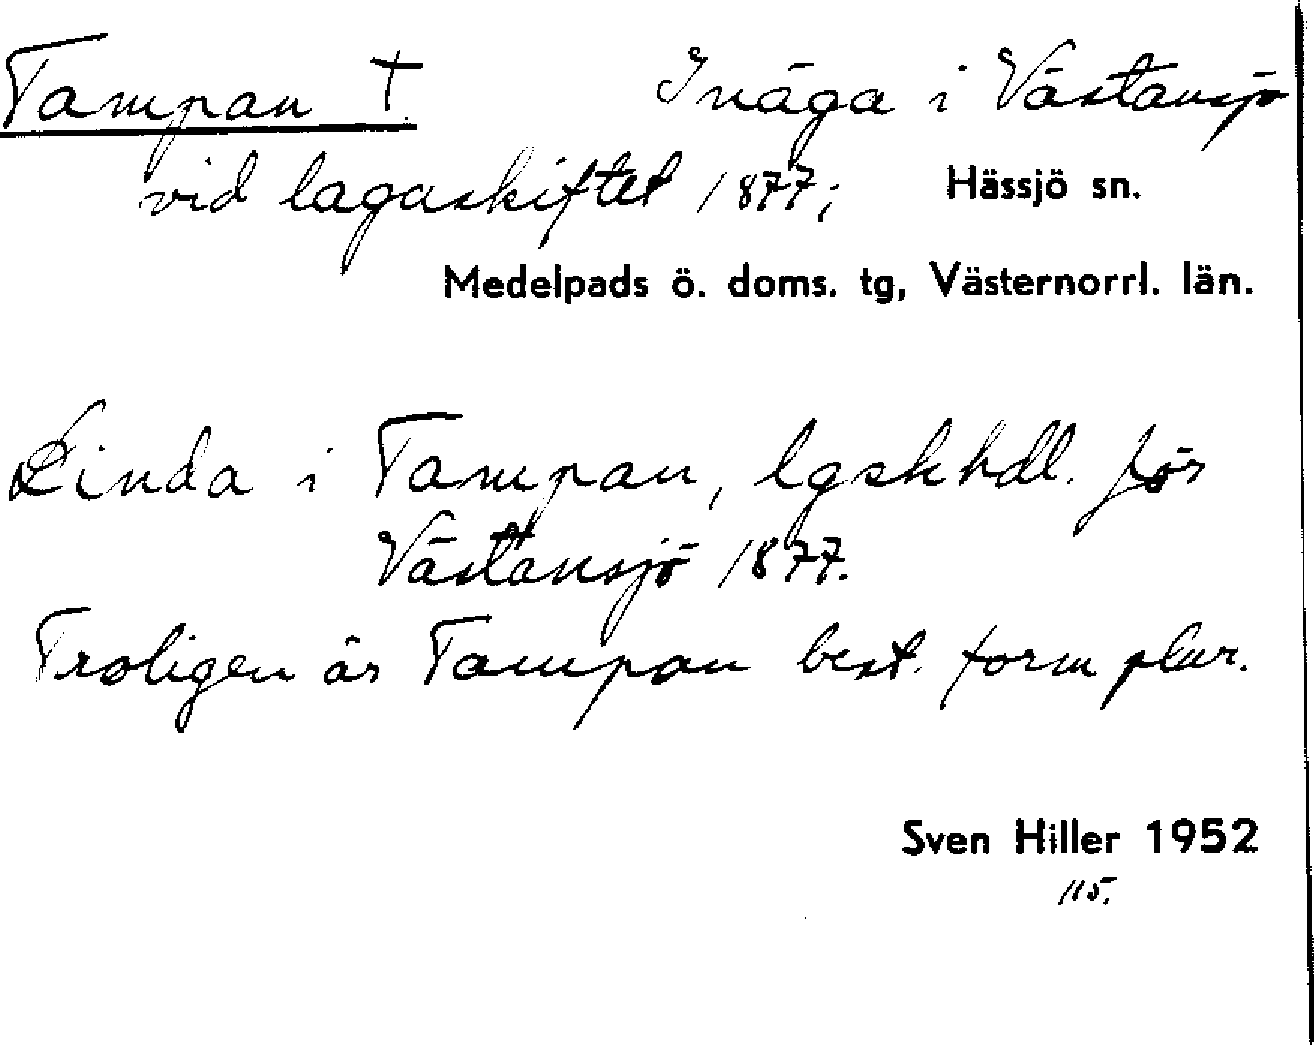 Tampan † Inäga i Västansjö
vid lagaskiftet 1877; Hässjö sn.
Medelpads ö. doms. tg, Västernorrl. län.
Linda i Tampan, lgskhdl. för
Västansjö 1877.
Troligen är Tampan best. form plur.
Sven Hiller 1952
115.